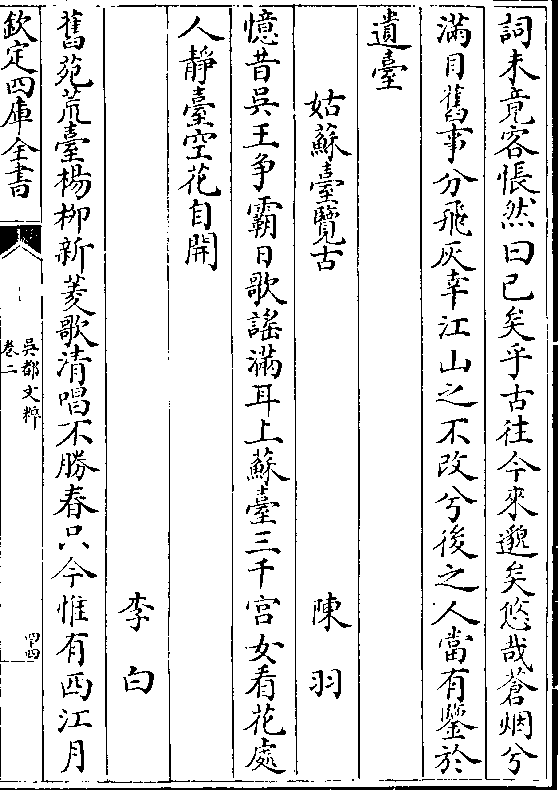 詞未竟客悵然曰已矣乎古往今來邈矣悠哉蒼烟兮
滿目舊事分飛灰幸江山之不改兮後之人當有鑒於
遺臺
姑蘇臺覽古 陳羽
憶昔吳王争霸日歌謠滿耳上蘇臺三千宫女看花處
人靜臺空花自開
李白
舊苑荒臺楊栁新菱歌清唱不勝春只今惟有西江月
欽定四庫全書
吳都文粹
卷二
四四